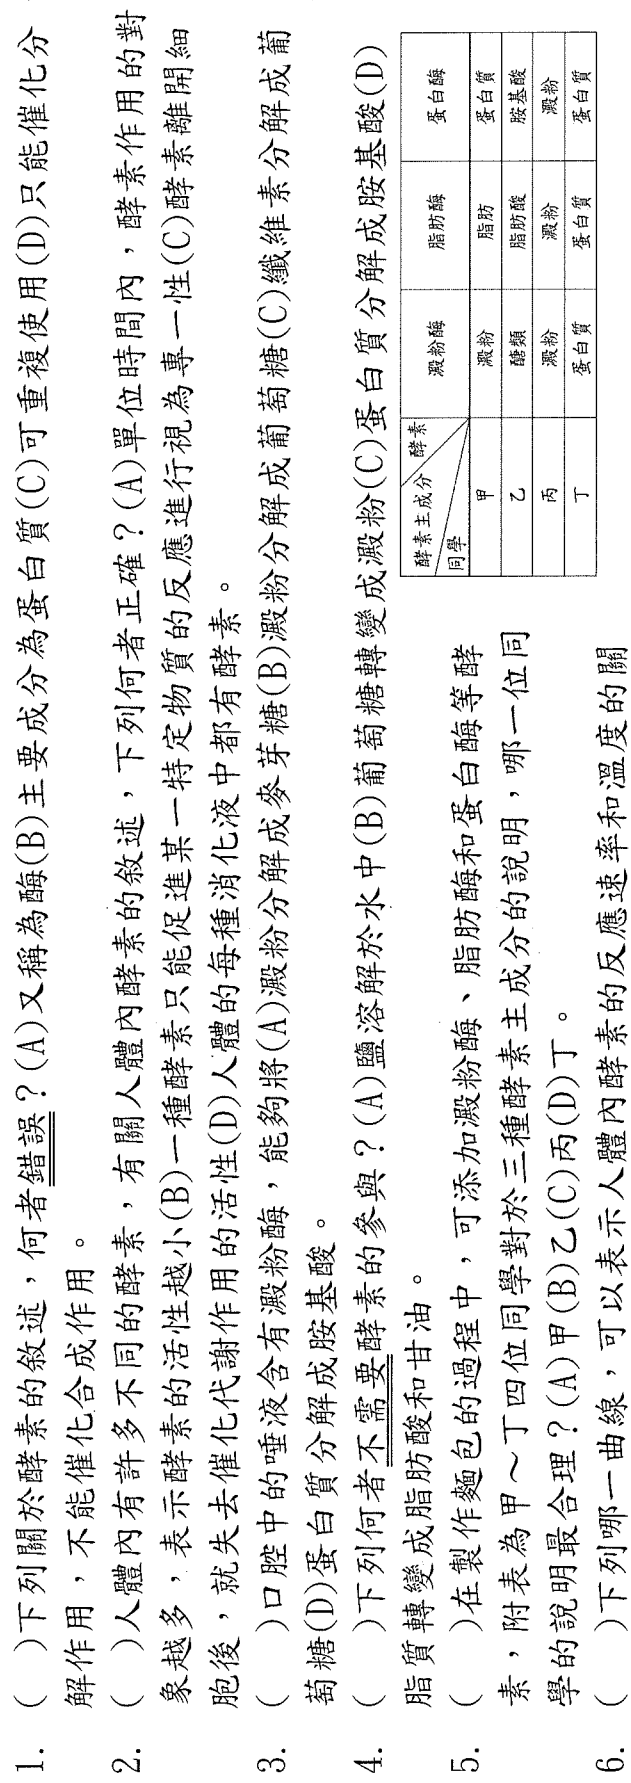 1. (　)下列關於酵素的敘述，何者錯誤？(A)又稱為酶(B)主要成分為蛋白質(C)可重複使用(D)只能催化分
解作用，不能催化合成作用。
2. (　)人體內有許多不同的酵素，有關人體內酵素的敘述，下列何者正確？(A)單位時間內，酵素作用的對
象越多，表示酵素的活性越小(B)一種酵素只能促進某一特定物質的反應進行視為專一性(C)酵素離開細
胞後，就失去催化代謝作用的活性(D)人體的每種消化液中都有酵素。
3. (　)口腔中的唾液含有澱粉酶，能夠將(A)澱粉分解成麥芽糖(B)澱粉分解成葡萄糖(C)纖維素分解成葡
萄糖(D)蛋白質分解成胺基酸。
4. (　)下列何者不需要酵素的參與？(A)鹽溶解於水中(B)葡萄糖轉變成澱粉(C)蛋白質分解成胺基酸(D)
脂質轉變成脂肪酸和甘油。
5. (　)在製作麵包的過程中，可添加澱粉酶、脂肪酶和蛋白酶等酵
素，附表為甲～丁四位同學對於三種酵素主成分的說明，哪一位同
學的說明最合理？(A)甲(B)乙(C)丙(D)丁。
酵素主成分 酵素 同學 澱粉酶 脂肪酶 蛋白酶
甲 澱粉 脂肪 蛋白質
乙 醣類 脂肪酸 胺基酸
丙 澱粉 澱粉 澱粉
丁 蛋白質 蛋白質 蛋白質
6. (　)下列哪一曲線，可以表示人體內酵素的反應速率和溫度的關